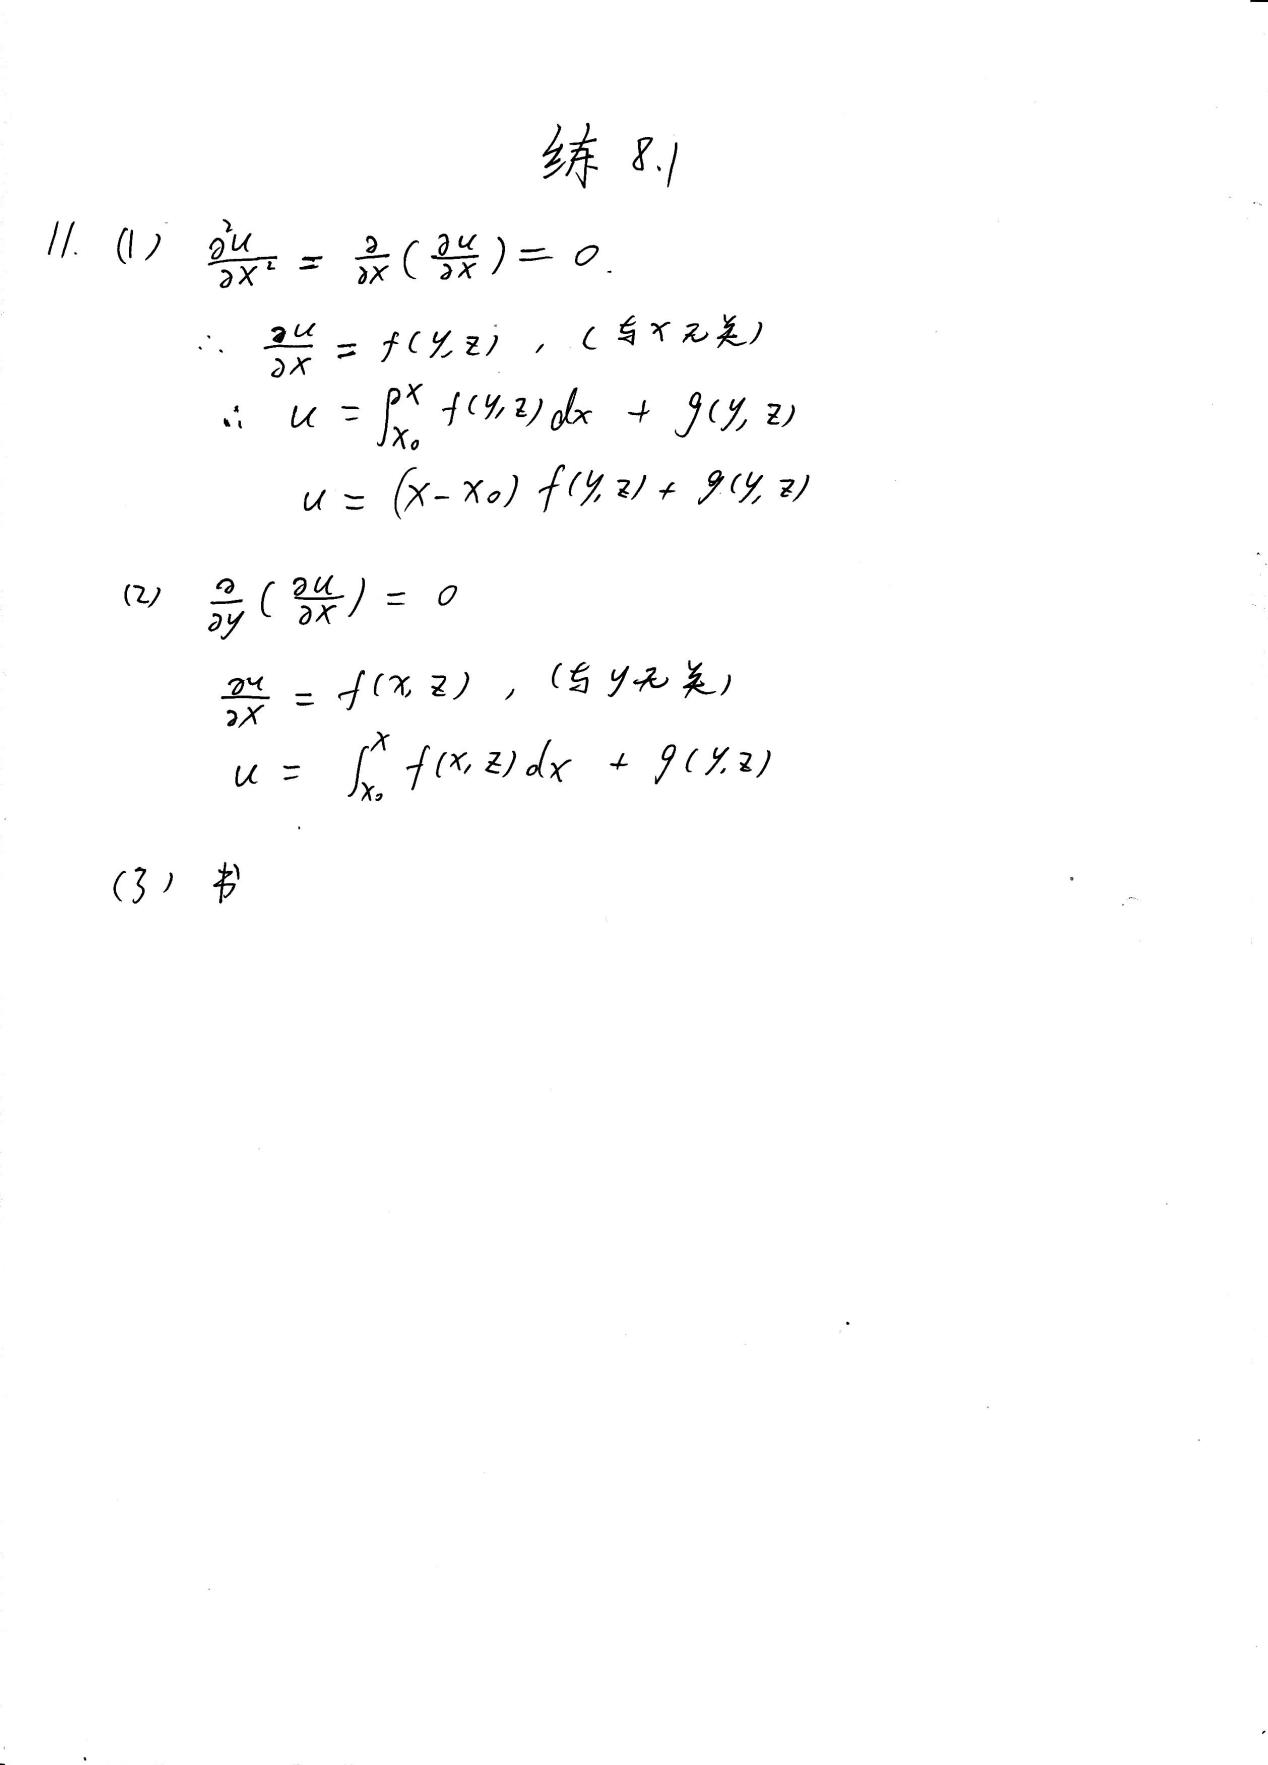 练 8.1
11. (1) ∂²u/∂x² = ∂/∂x (∂u/∂x) = 0.
∴ ∂u/∂x = f(y, z), (与x无关)
∴ u = ∫_{x₀}^{x} f(y, z) dx + g(y, z)
u = (x - x₀) f(y, z) + g(y, z)
(2) ∂/∂y (∂u/∂x) = 0
∂u/∂x = f(x, z), (与y无关)
u = ∫_{x₀}^{x} f(x, z) dx + g(y, z)
(3) 书